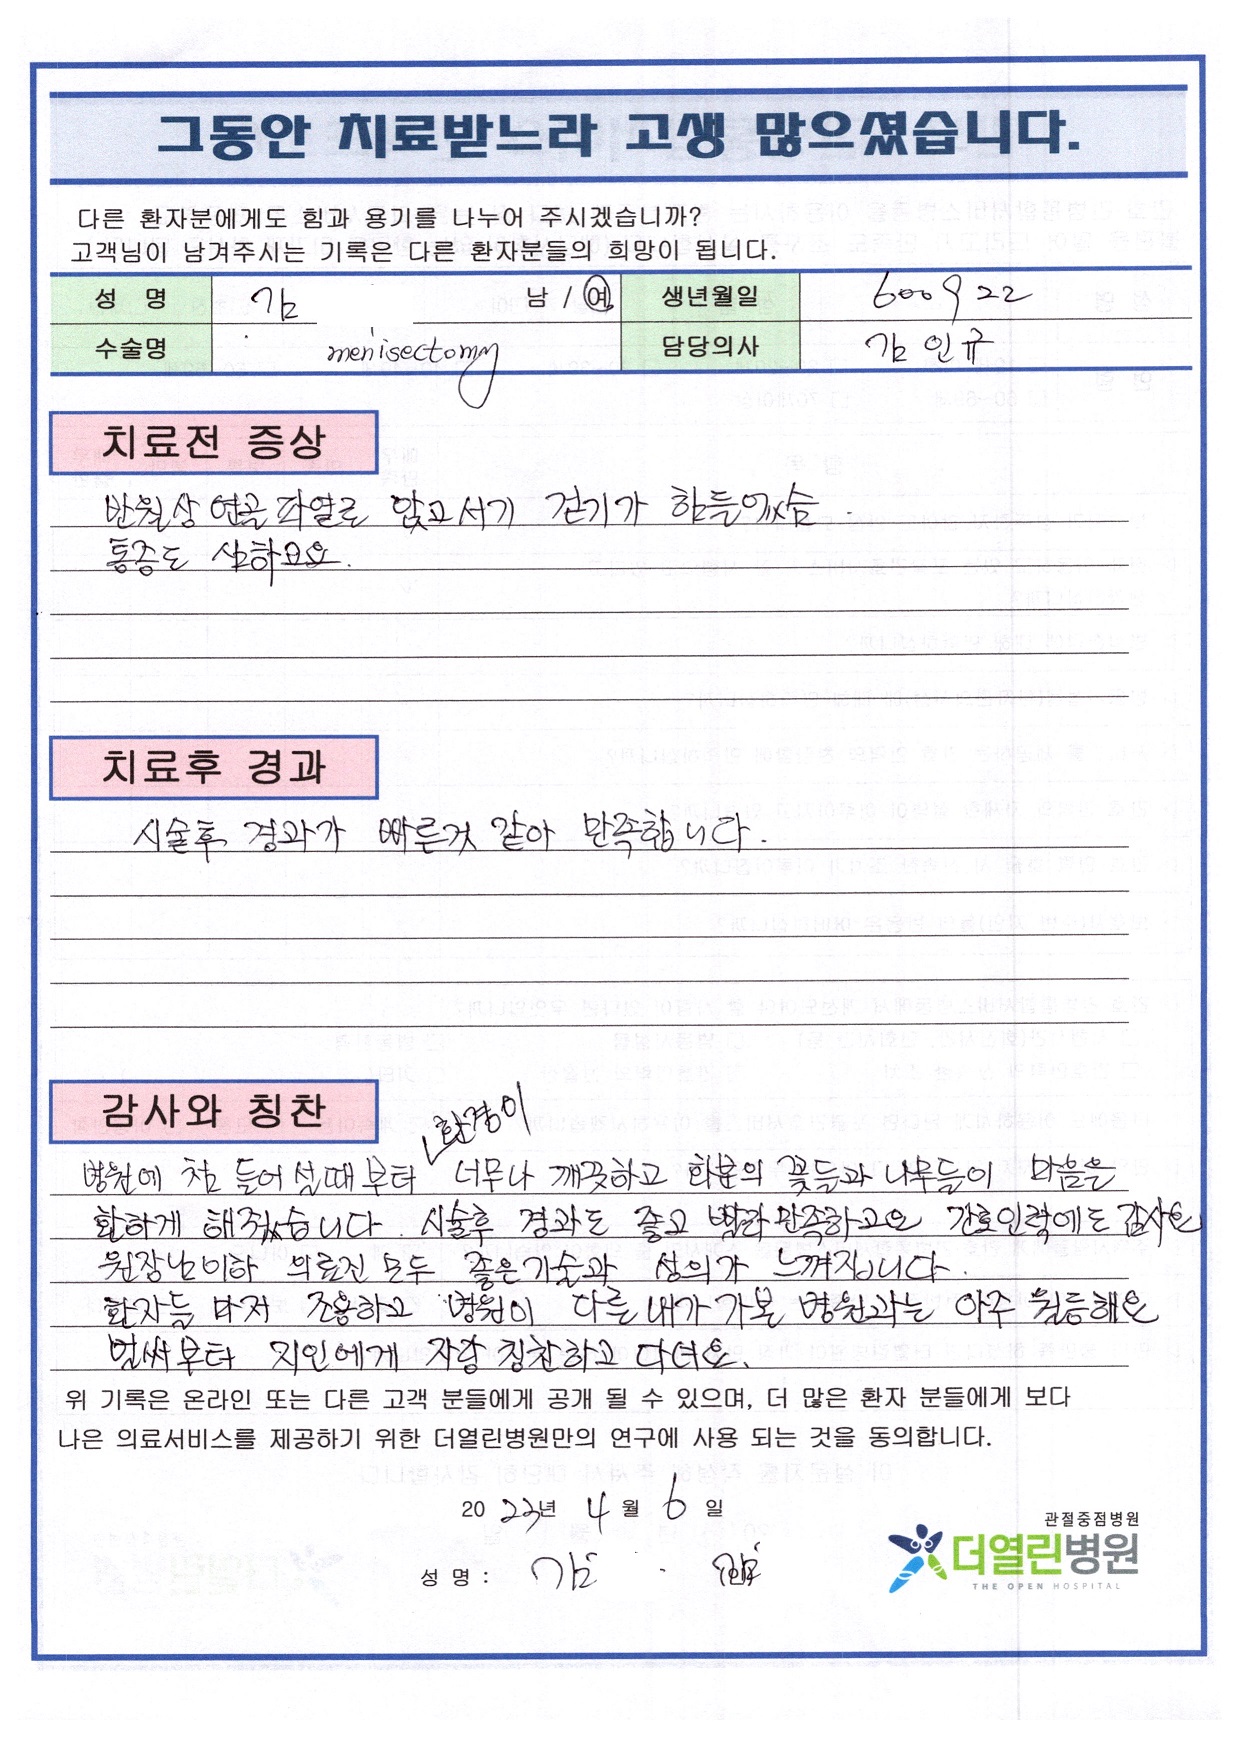 그동안 치료받느라 고생 많으셨습니다.
다른 환자분에게도 힘과 용기를 나누어 주시겠습니까?
고객님이 남겨주시는 기록은 다른 환자분들의 희망이 됩니다.
성 명 김 남 / 여 생년월일 600922
수술명 menisectomy 담당의사 김인규
치료전 증상
반월상 연골파열로 앉고서기 걷기가 힘들었슴.
통증도 심하고요.
치료후 경과
시술후 경과가 빠른것 같아 만족합니다.
감사와 칭찬
환경이
병원에 첨 들어설때부터 너무나 깨끗하고 화분의 꽃들과 나무들이 마음은
환하게 해줬습니다. 시술후 경과도 좋고 빨라 만족하고요 간호인력에도 감사요
원장님이하 의료진 모두 좋은기술과 성의가 느껴집니다.
환자들 마저 조용하고 병원이 다른 내가 가본 병원과는 아주 월등해요
벌써부터 지인에게 자랑 칭찬하고 다녀요.
위 기록은 온라인 또는 다른 고객 분들에게 공개 될 수 있으며, 더 많은 환자 분들에게 보다
나은 의료서비스를 제공하기 위한 더열린병원만의 연구에 사용 되는 것을 동의합니다.
2023년 4월 6일
성 명 : 김
관절중점병원
더열린병원
THE OPEN HOSPITAL